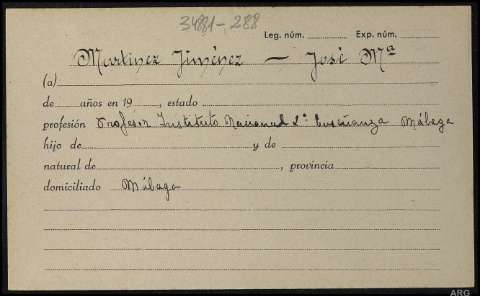 34881-288
Leg. núm. Exp. núm.
Martinez Jiménez — José Mª
(a)
de años en 19 , estado
profesión Profesor Instituto Nacional 2ª Enseñanza Málaga
hijo de y de
natural de , provincia
domiciliado Málaga
ARG